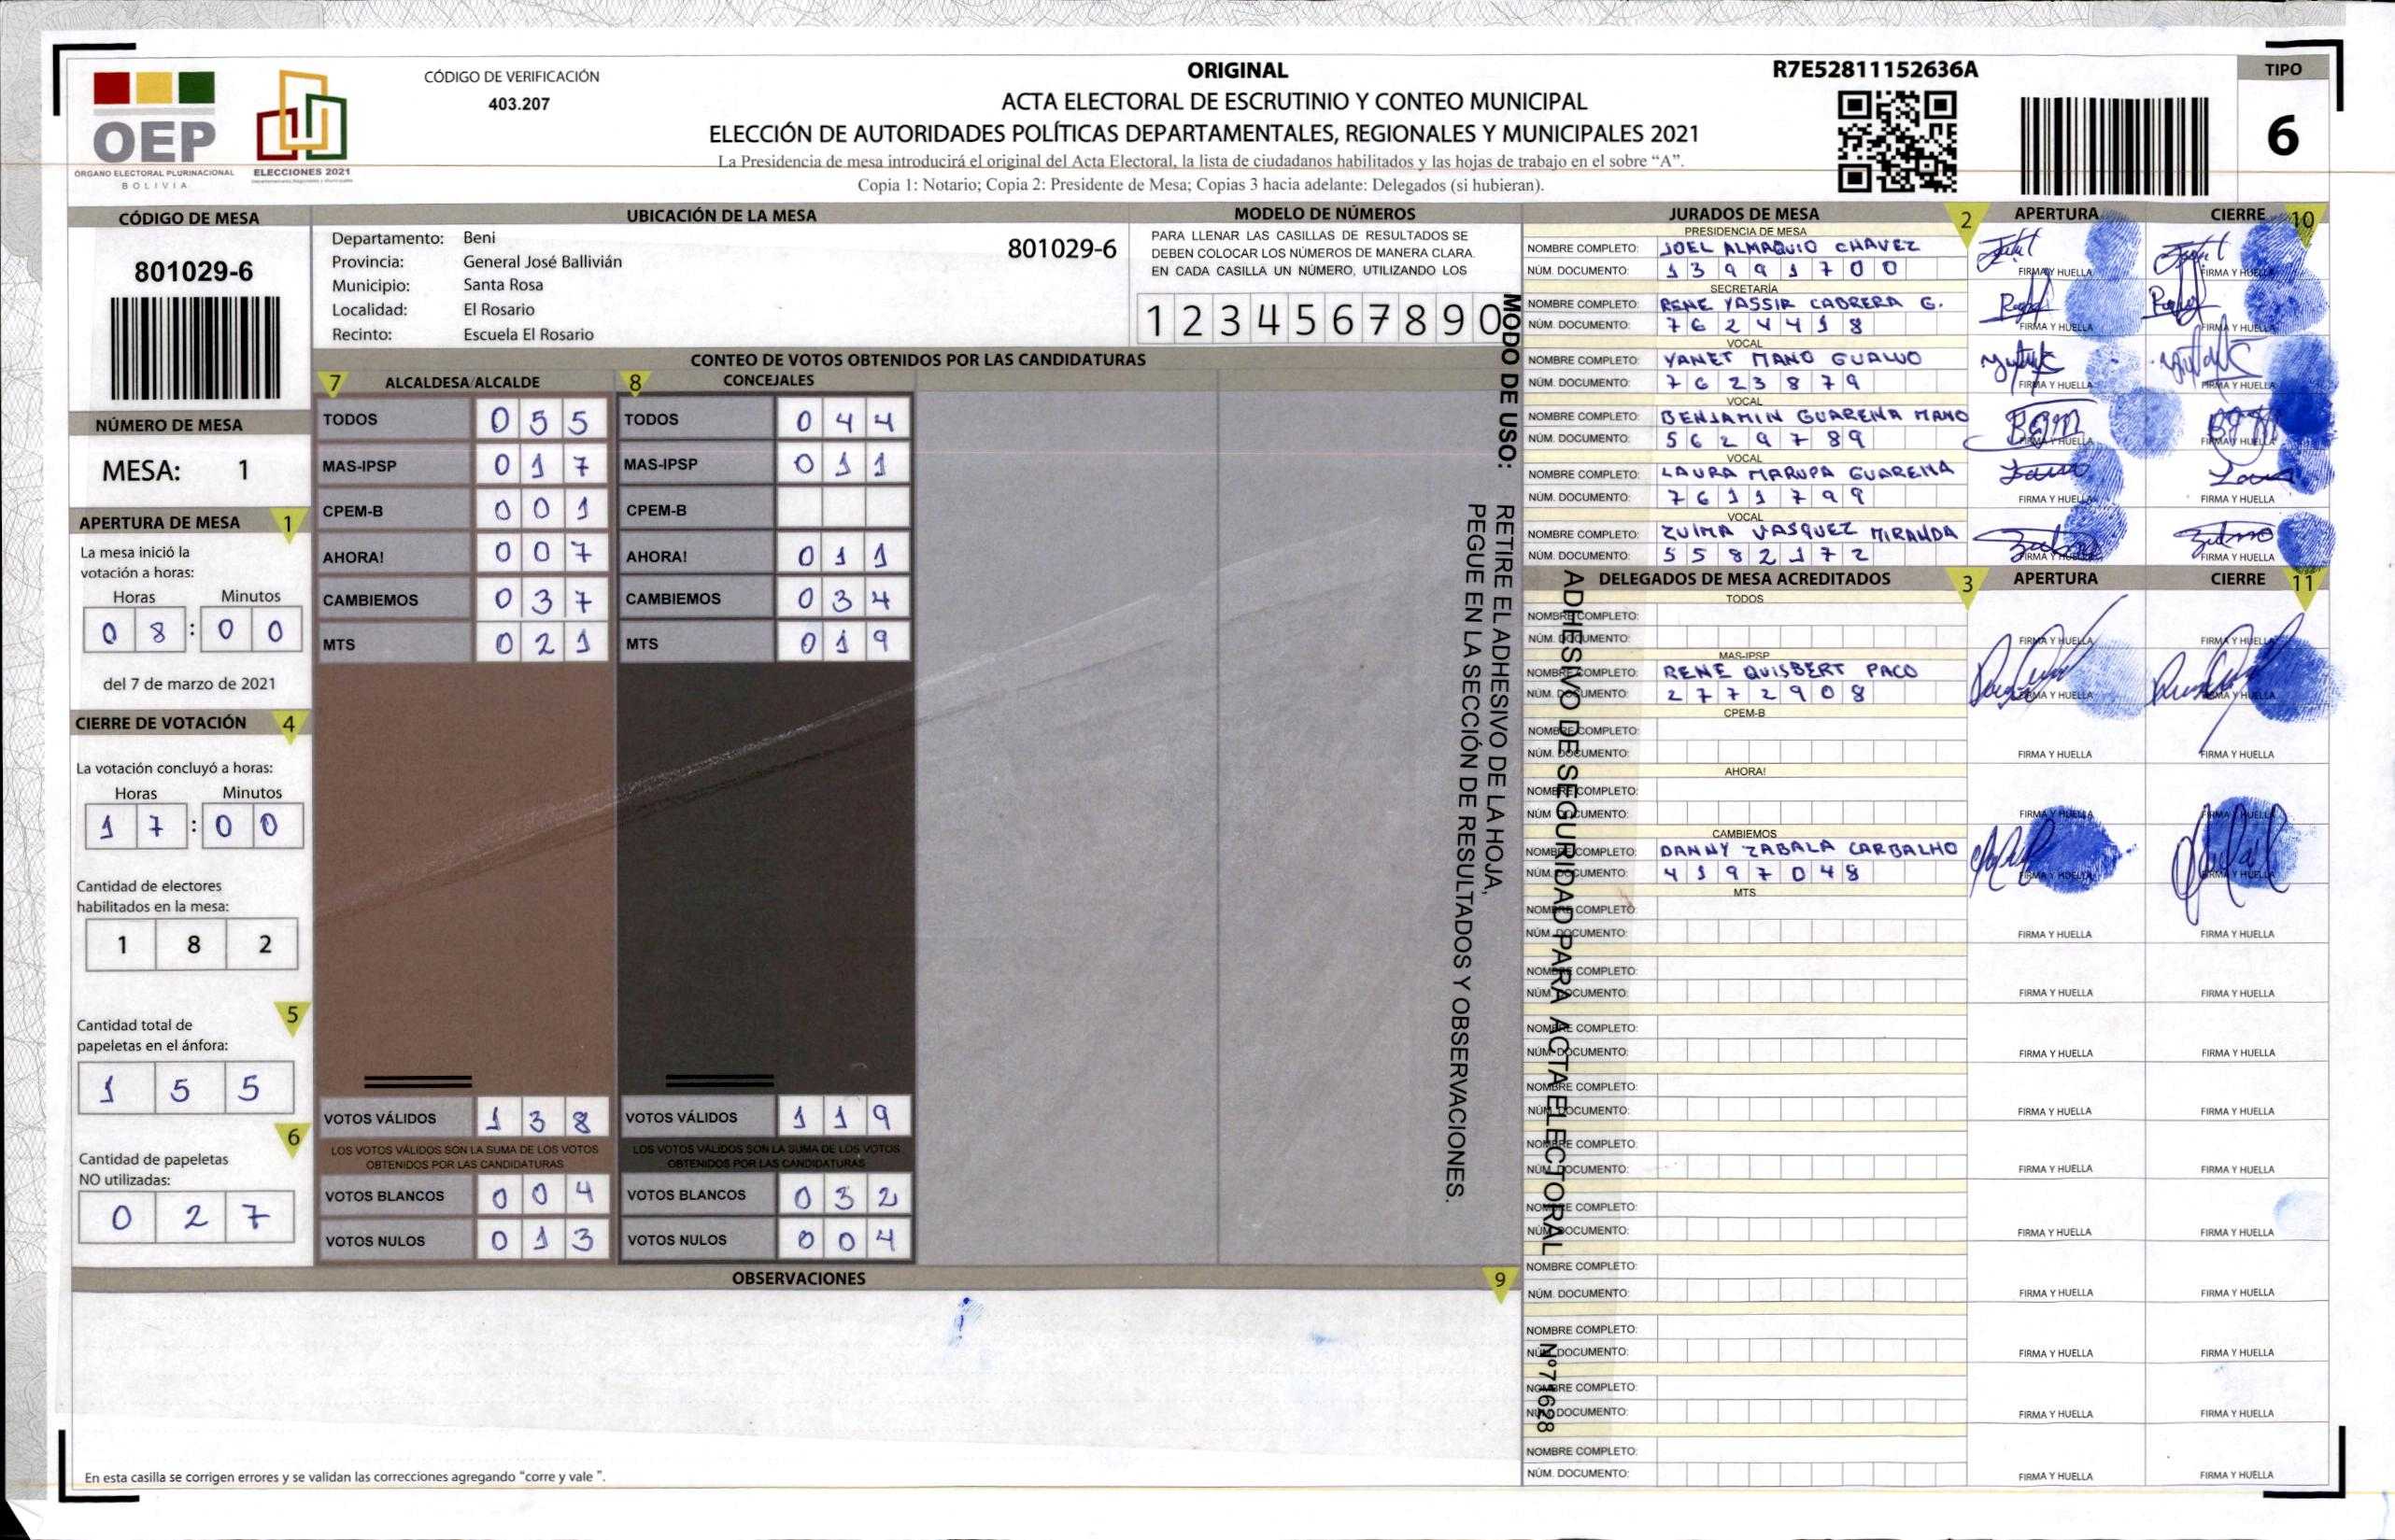 ORIGINAL
R7E52811152636A
TIPO
6
CÓDIGO DE VERIFICACIÓN
403.207
ACTA ELECTORAL DE ESCRUTINIO Y CONTEO MUNICIPAL
ELECCIÓN DE AUTORIDADES POLÍTICAS DEPARTAMENTALES, REGIONALES Y MUNICIPALES 2021
La Presidencia de mesa introducirá el original del Acta Electoral, la lista de ciudadanos habilitados y las hojas de trabajo en el sobre “A”.
Copia 1: Notario; Copia 2: Presidente de Mesa; Copias 3 hacia adelante: Delegados (si hubieran).
OEP
ÓRGANO ELECTORAL PLURINACIONAL
BOLIVIA
ELECCIONES 2021
CÓDIGO DE MESA
801029-6
NÚMERO DE MESA
MESA: 1
APERTURA DE MESA 1
La mesa inició la
votación a horas:
Horas Minutos
0 8 : 0 0
del 7 de marzo de 2021
CIERRE DE VOTACIÓN 4
La votación concluyó a horas:
Horas Minutos
1 7 : 0 0
Cantidad de electores
habilitados en la mesa:
1 8 2
5
Cantidad total de
papeletas en el ánfora:
1 5 5
6
Cantidad de papeletas
NO utilizadas:
0 2 7
UBICACIÓN DE LA MESA
Departamento: Beni
801029-6
Provincia: General José Ballivián
Municipio: Santa Rosa
Localidad: El Rosario
Recinto: Escuela El Rosario
MODELO DE NÚMEROS
PARA LLENAR LAS CASILLAS DE RESULTADOS SE
DEBEN COLOCAR LOS NÚMEROS DE MANERA CLARA.
EN CADA CASILLA UN NÚMERO, UTILIZANDO LOS
1 2 3 4 5 6 7 8 9 0
CONTEO DE VOTOS OBTENIDOS POR LAS CANDIDATURAS
7 ALCALDESA/ALCALDE
TODOS 0 5 5
MAS-IPSP 0 1 7
CPEM-B 0 0 1
AHORA! 0 0 7
CAMBIEMOS 0 3 7
MTS 0 2 1
VOTOS VÁLIDOS 1 3 8
LOS VOTOS VÁLIDOS SON LA SUMA DE LOS VOTOS
OBTENIDOS POR LAS CANDIDATURAS
VOTOS BLANCOS 0 0 4
VOTOS NULOS 0 1 3
8 CONCEJALES
TODOS 0 4 4
MAS-IPSP 0 1 1
CPEM-B
AHORA! 0 1 1
CAMBIEMOS 0 3 4
MTS 0 1 9
VOTOS VÁLIDOS 1 1 9
LOS VOTOS VÁLIDOS SON LA SUMA DE LOS VOTOS
OBTENIDOS POR LAS CANDIDATURAS
VOTOS BLANCOS 0 3 2
VOTOS NULOS 0 0 4
MODO DE USO: RETIRE EL ADHESIVO DE LA HOJA,
PEGUE EN LA SECCIÓN DE RESULTADOS Y OBSERVACIONES.
ADHESIVO DE SEGURIDAD PARA ACTA ELECTORAL Nº71628
OBSERVACIONES 9
En esta casilla se corrigen errores y se validan las correcciones agregando “corre y vale ”.
JURADOS DE MESA 2 APERTURA CIERRE 10
PRESIDENCIA DE MESA
NOMBRE COMPLETO: JOEL ALMAQUIO CHAVEZ
NÚM. DOCUMENTO: 1 3 9 9 1 7 0 0
FIRMA Y HUELLA FIRMA Y HUELLA
SECRETARÍA
NOMBRE COMPLETO: RENE YASSIR CABRERA G.
NÚM. DOCUMENTO: 7 6 2 4 4 1 8
FIRMA Y HUELLA FIRMA Y HUELLA
VOCAL
NOMBRE COMPLETO: YANET MANO GUALUO
NÚM. DOCUMENTO: 7 6 2 3 8 7 9
FIRMA Y HUELLA FIRMA Y HUELLA
VOCAL
NOMBRE COMPLETO: BENJAMIN GUARENA MANO
NÚM. DOCUMENTO: 5 6 2 9 7 8 9
FIRMA Y HUELLA FIRMA Y HUELLA
VOCAL
NOMBRE COMPLETO: LAURA MARUPA GUARENA
NÚM. DOCUMENTO: 7 6 1 1 7 9 9
FIRMA Y HUELLA FIRMA Y HUELLA
VOCAL
NOMBRE COMPLETO: ZULMA VASQUEZ MIRANDA
NÚM. DOCUMENTO: 5 5 8 2 1 7 2
FIRMA Y HUELLA FIRMA Y HUELLA
DELEGADOS DE MESA ACREDITADOS 3 APERTURA CIERRE 11
TODOS
NOMBRE COMPLETO:
NÚM. DOCUMENTO:
FIRMA Y HUELLA FIRMA Y HUELLA
MAS-IPSP
NOMBRE COMPLETO: RENE QUISBERT PACO
NÚM. DOCUMENTO: 2 7 7 2 9 0 8
FIRMA Y HUELLA FIRMA Y HUELLA
CPEM-B
NOMBRE COMPLETO:
NÚM. DOCUMENTO:
FIRMA Y HUELLA FIRMA Y HUELLA
AHORA!
NOMBRE COMPLETO:
NÚM DOCUMENTO:
FIRMA Y HUELLA FIRMA Y HUELLA
CAMBIEMOS
NOMBRE COMPLETO: DANNY ZABALA CARBALHO
NÚM. DOCUMENTO: 4 1 9 7 0 4 8
FIRMA Y HUELLA FIRMA Y HUELLA
MTS
NOMBRE COMPLETO:
NÚM. DOCUMENTO:
FIRMA Y HUELLA FIRMA Y HUELLA
NOMBRE COMPLETO:
NÚM. DOCUMENTO:
FIRMA Y HUELLA FIRMA Y HUELLA
NOMBRE COMPLETO:
NÚM. DOCUMENTO:
FIRMA Y HUELLA FIRMA Y HUELLA
NOMBRE COMPLETO:
NÚM. DOCUMENTO:
FIRMA Y HUELLA FIRMA Y HUELLA
NOMBRE COMPLETO:
NÚM. DOCUMENTO:
FIRMA Y HUELLA FIRMA Y HUELLA
NOMBRE COMPLETO:
NÚM. DOCUMENTO:
FIRMA Y HUELLA FIRMA Y HUELLA
NOMBRE COMPLETO:
NÚM. DOCUMENTO:
FIRMA Y HUELLA FIRMA Y HUELLA
NOMBRE COMPLETO:
NÚM. DOCUMENTO:
FIRMA Y HUELLA FIRMA Y HUELLA
NOMBRE COMPLETO:
NÚM. DOCUMENTO:
FIRMA Y HUELLA FIRMA Y HUELLA
NOMBRE COMPLETO:
NÚM. DOCUMENTO:
FIRMA Y HUELLA FIRMA Y HUELLA